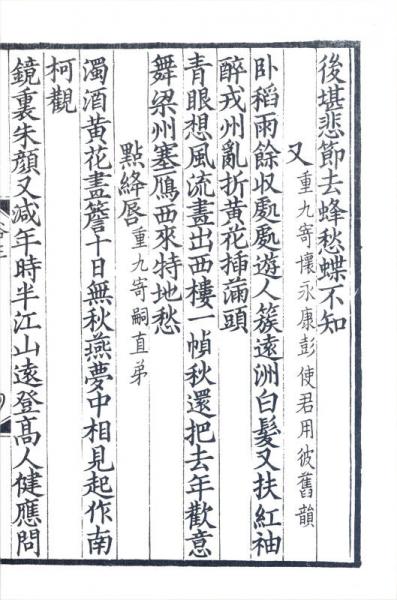 後堪悲節去蜂愁蝶不知
又重九寄懷永康彭使君用彼舊韻
卧稻雨餘収處處遊人簇遠洲白髮又扶紅袖
醉戎州亂折黃花揷滿頭
青眼想風流畫出西樓一幀秋還把去年歡意
舞梁州塞鴈西來特地愁
點絳唇重九寄嗣直弟
濁酒黃花畫簷十日無秋燕夢中相見起作南
柯觀
鏡裏朱顔又减年時半江山遠登髙人健應問